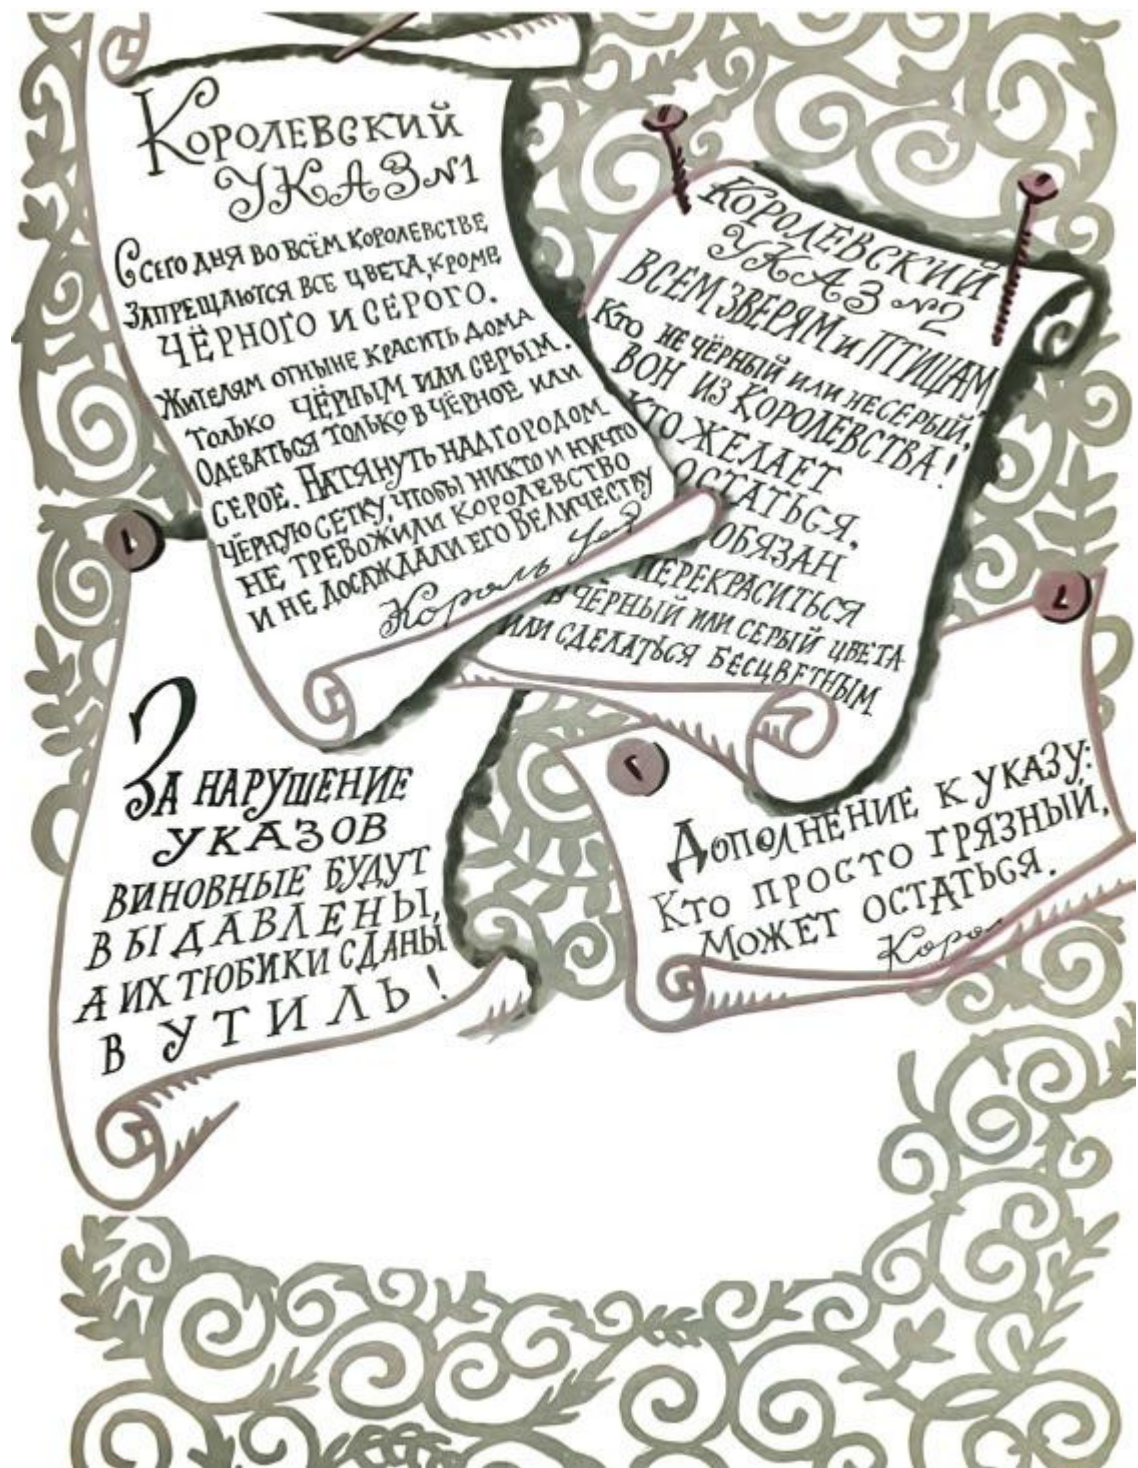 Королевский
указ №1
С сего дня во всём королевстве
запрещаются все цвета, кроме
чёрного и серого.
Жителям отныне красить дома
только чёрным или серым.
Одеваться только в чёрное или
серое. Натянуть над городом
чёрную сетку, чтобы никто и ничто
не тревожили королевство
и не досаждали его Величеству
Король
Королевский
указ №2
Всем зверям и птицам
Кто не чёрный или несерый,
вон из королевства!
Кто желает
остаться,
обязан
перекраситься
в чёрный или серый цвета
или сделаться бесцветным
За нарушение
указов
виновные будут
выдавлены,
а их тюбики сданы
в утиль!
Дополнение к указу:
Кто просто грязный,
может остаться.
Коро